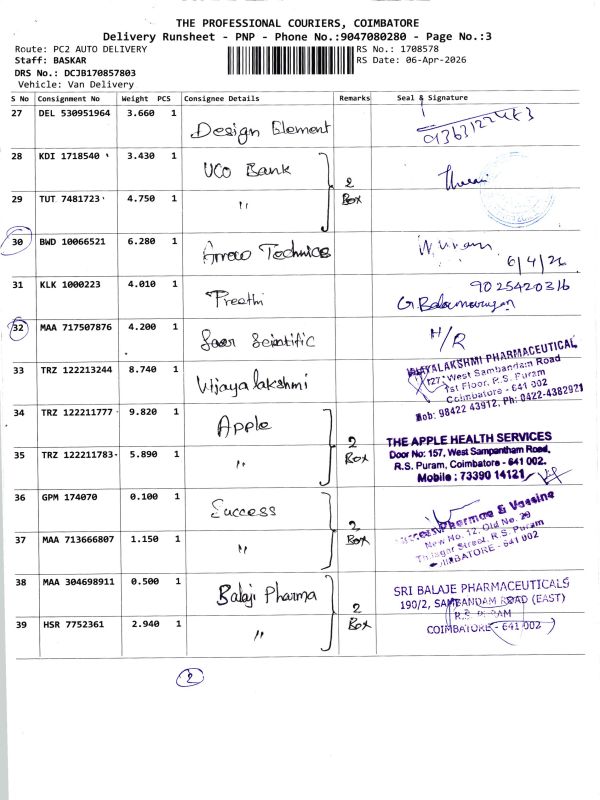 THE PROFESSIONAL COURIERS, COIMBATORE
Delivery Runsheet - PNP - Phone No.:9047080280 - Page No.:3
Route: PC2 AUTO DELIVERY
RS No.: 1708578
Staff: BASKAR
RS Date: 06-Apr-2026
DRS No.: DCJB170857803
Vehicle: Van Delivery
S No Consignment No Weight PCS Consignee Details Remarks Seal & Signature
27 DEL 530951964 3.660 1 Design Element
28 KDI 1718540 3.430 1 UCO Bank 2 Box
29 TUT 7481723 4.750 1 "
30 BWD 10066521 6.280 1 Arrow Technics 6/4/26
31 KLK 1000223 4.010 1 Preethi 9025420316
G. Balamurugan
32 MAA 717507876 4.200 1 Scientific H/R
33 TRZ 122213244 8.740 1 Vijayalakshmi
VIJAYALAKSHMI PHARMACEUTICAL
127, West Sambandam Road
1st Floor, R.S. Puram
Coimbatore - 641 002
Mob: 98422 43912, Ph: 0422-4382921
34 TRZ 122211777 9.820 1 Apple 2 Box
35 TRZ 122211783 5.890 1 "
THE APPLE HEALTH SERVICES
Door No: 157, West Sampantham Road,
R.S. Puram, Coimbatore - 641 002.
Mobile : 73390 14121
36 GPM 174070 0.100 1 Success 2 Box
37 MAA 713666807 1.150 1 "
Success Pharmae & Vassine
New No. 12, Old No. 29
Street, R.S. Puram
COIMBATORE - 641 002
38 MAA 304698911 0.500 1 Balaji Pharma 2 Box
39 HSR 7752361 2.940 1 "
SRI BALAJE PHARMACEUTICALS
190/2, SAMBANDAM ROAD (EAST)
R.S. PURAM
COIMBATORE - 641 002
2